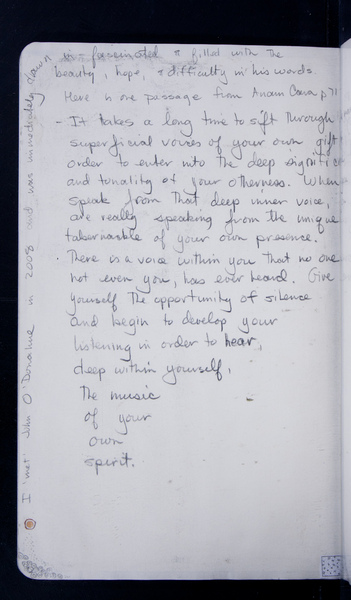 I "met" John O'Donahue in 2008 and was immediately drawn
in - fascinated & filled with the
beauty, hope, & difficulty in his words.
Here is one passage from Anam Cara p 71
- It takes a long time to sift through
superficial voices of your own gift
order to enter into the deep signific
and tonality of your otherness. When
speak from that deep inner voice,
are really speaking from the unique
tabernacle of your own presence.
There is a voice within you that no one
not even you, has ever heard. Give
yourself the opportunity of silence
and begin to develop your
listening in order to hear,
deep within yourself,
the music
of your
own
spirit.